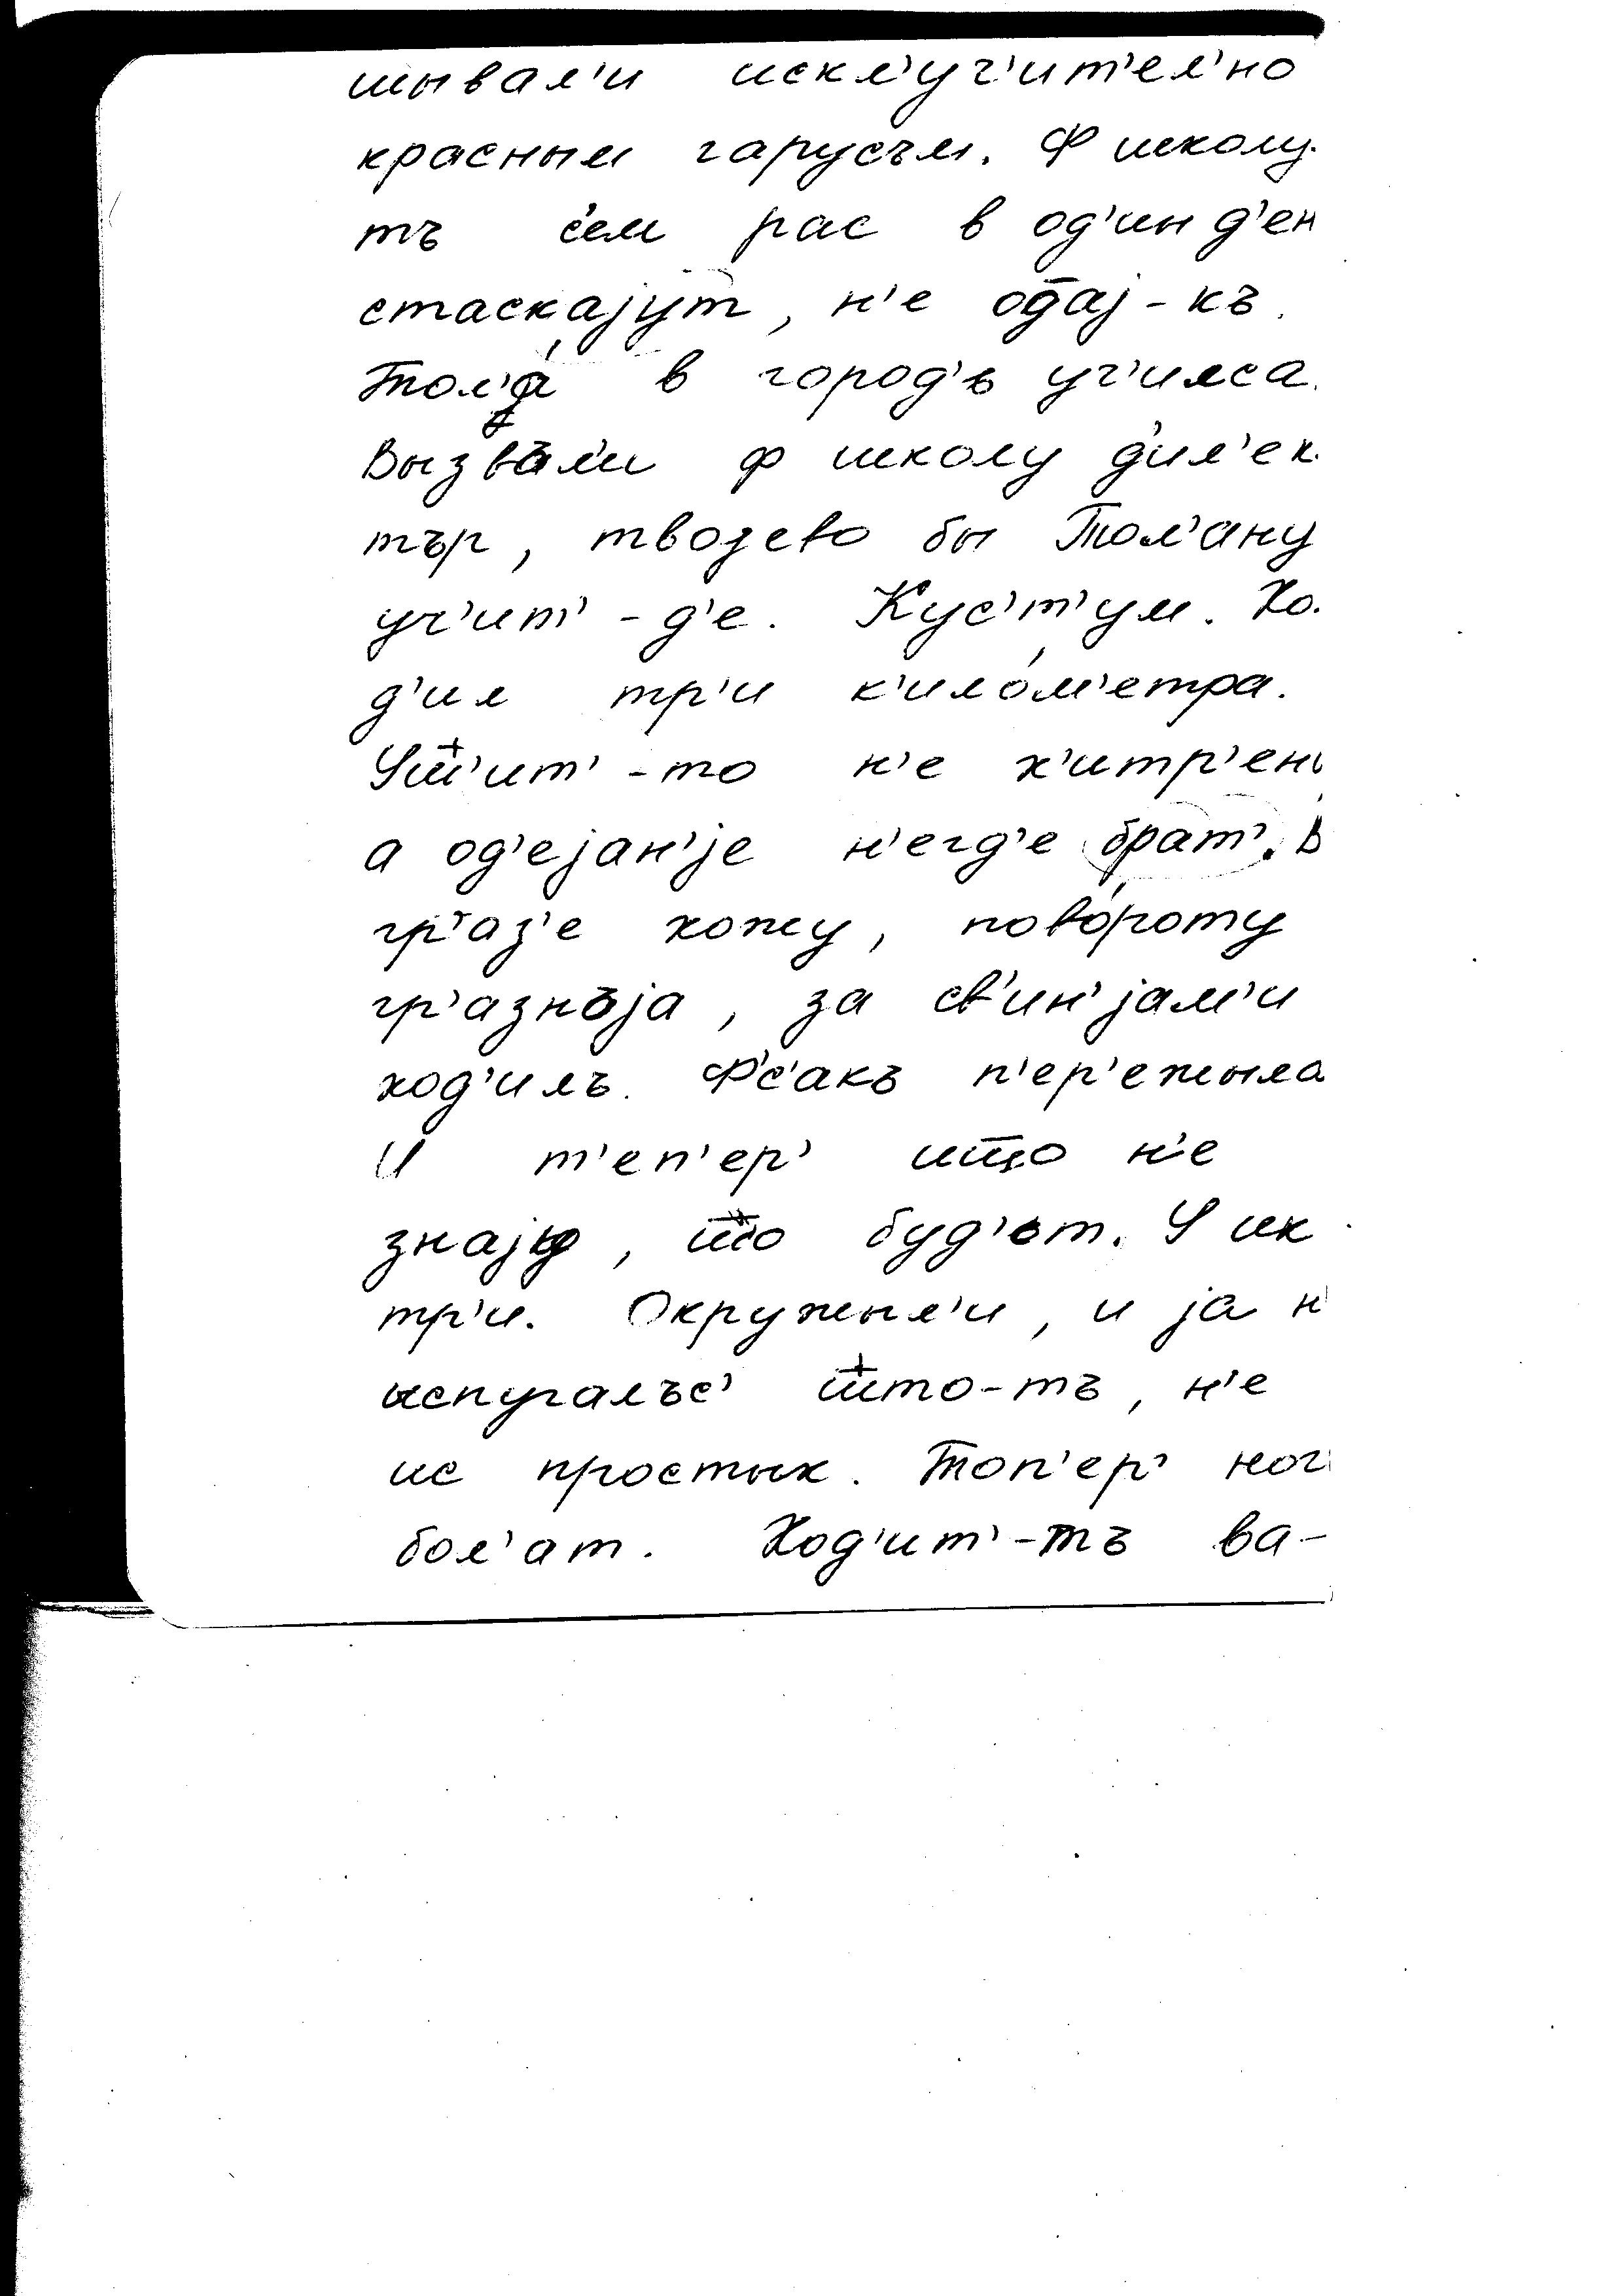 шывал'и искл'уч'ит'ел'но
красным гарусъм. Ф школу
тъ с'ем рас в од'ин д'ен
стаскајут, н'е одај-къ.
Тол'а в город'ъ уч'илса.
Вызвал'и ф школу д'ил'ек
тър, твојево бы Тол'ану
уч'ит'-д'е. Кус'т'ум. Хо
д'ил тр'и к'ило́м'етра.
Уш'ит'-то н'е х'итр'ен
а од'ејан'је н'егд'е брат'. В
гр'аз'е хожу, пово́роту
гр'азнъја, за св'ин'јам'и
ход'илъ. Ф'с'акъ п'ер'ежыла
И т'еп'ер' што н'е
знају, што буд'от. У их
тр'и. Окружыл'и, и ја н'
испугалъс' што-тъ, н'е
ис простых. Топ'ер' ног
бол'ат. Ход'ит'-тъ ва-